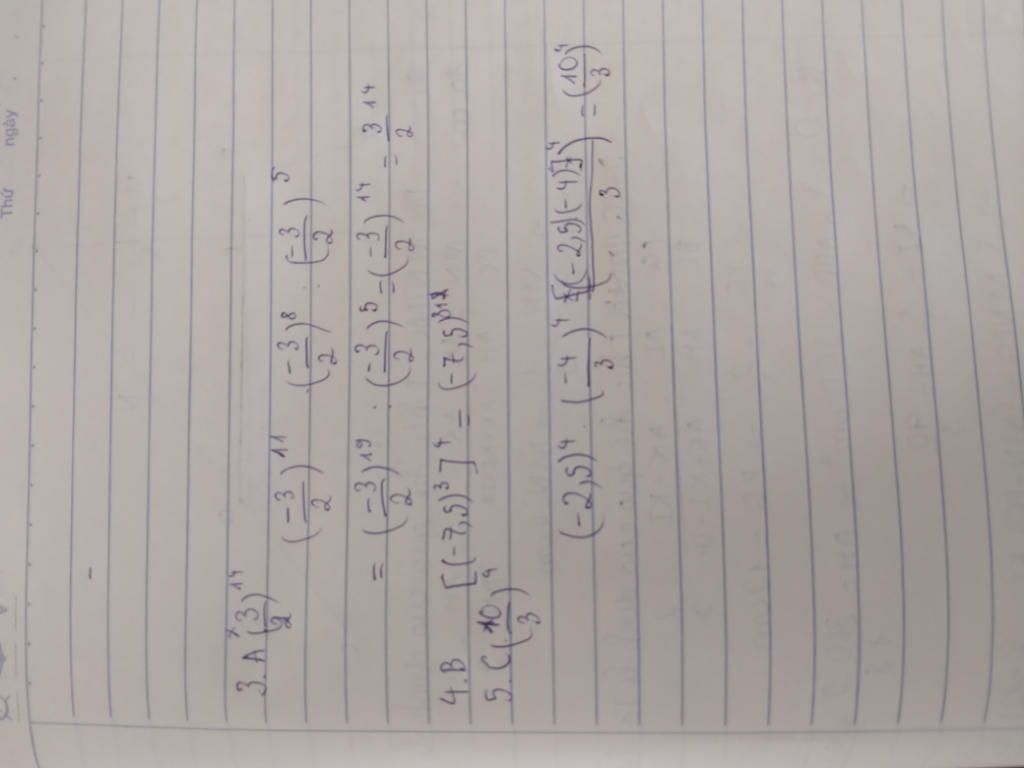 Thứ ngày
3. A (3/2)^14
(-3/2)^11 (-3/2)^8 . (-3/2)^5
= (-3/2)^19 . (-3/2)^5 = (-3/2)^14 = 3/2^14
4. B [(-7,5)^3]^4 = (-7,5)^12
5. C (10/3)^4
(-2,5)^4 . (-4/3)^4 = [(-2,5)(-4)/3]^4 = (10/3)^4